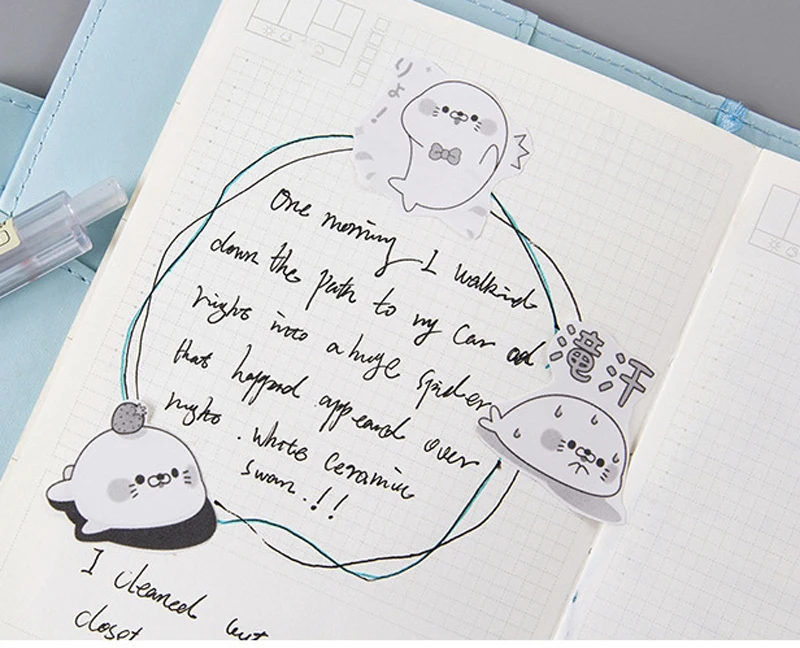 りょ！
One morning I walkind
down the path to my car ad
right into a huge spider
滝汗
that happend appeard over
night. white ceramic
swan.!!
I cleaned out
closet